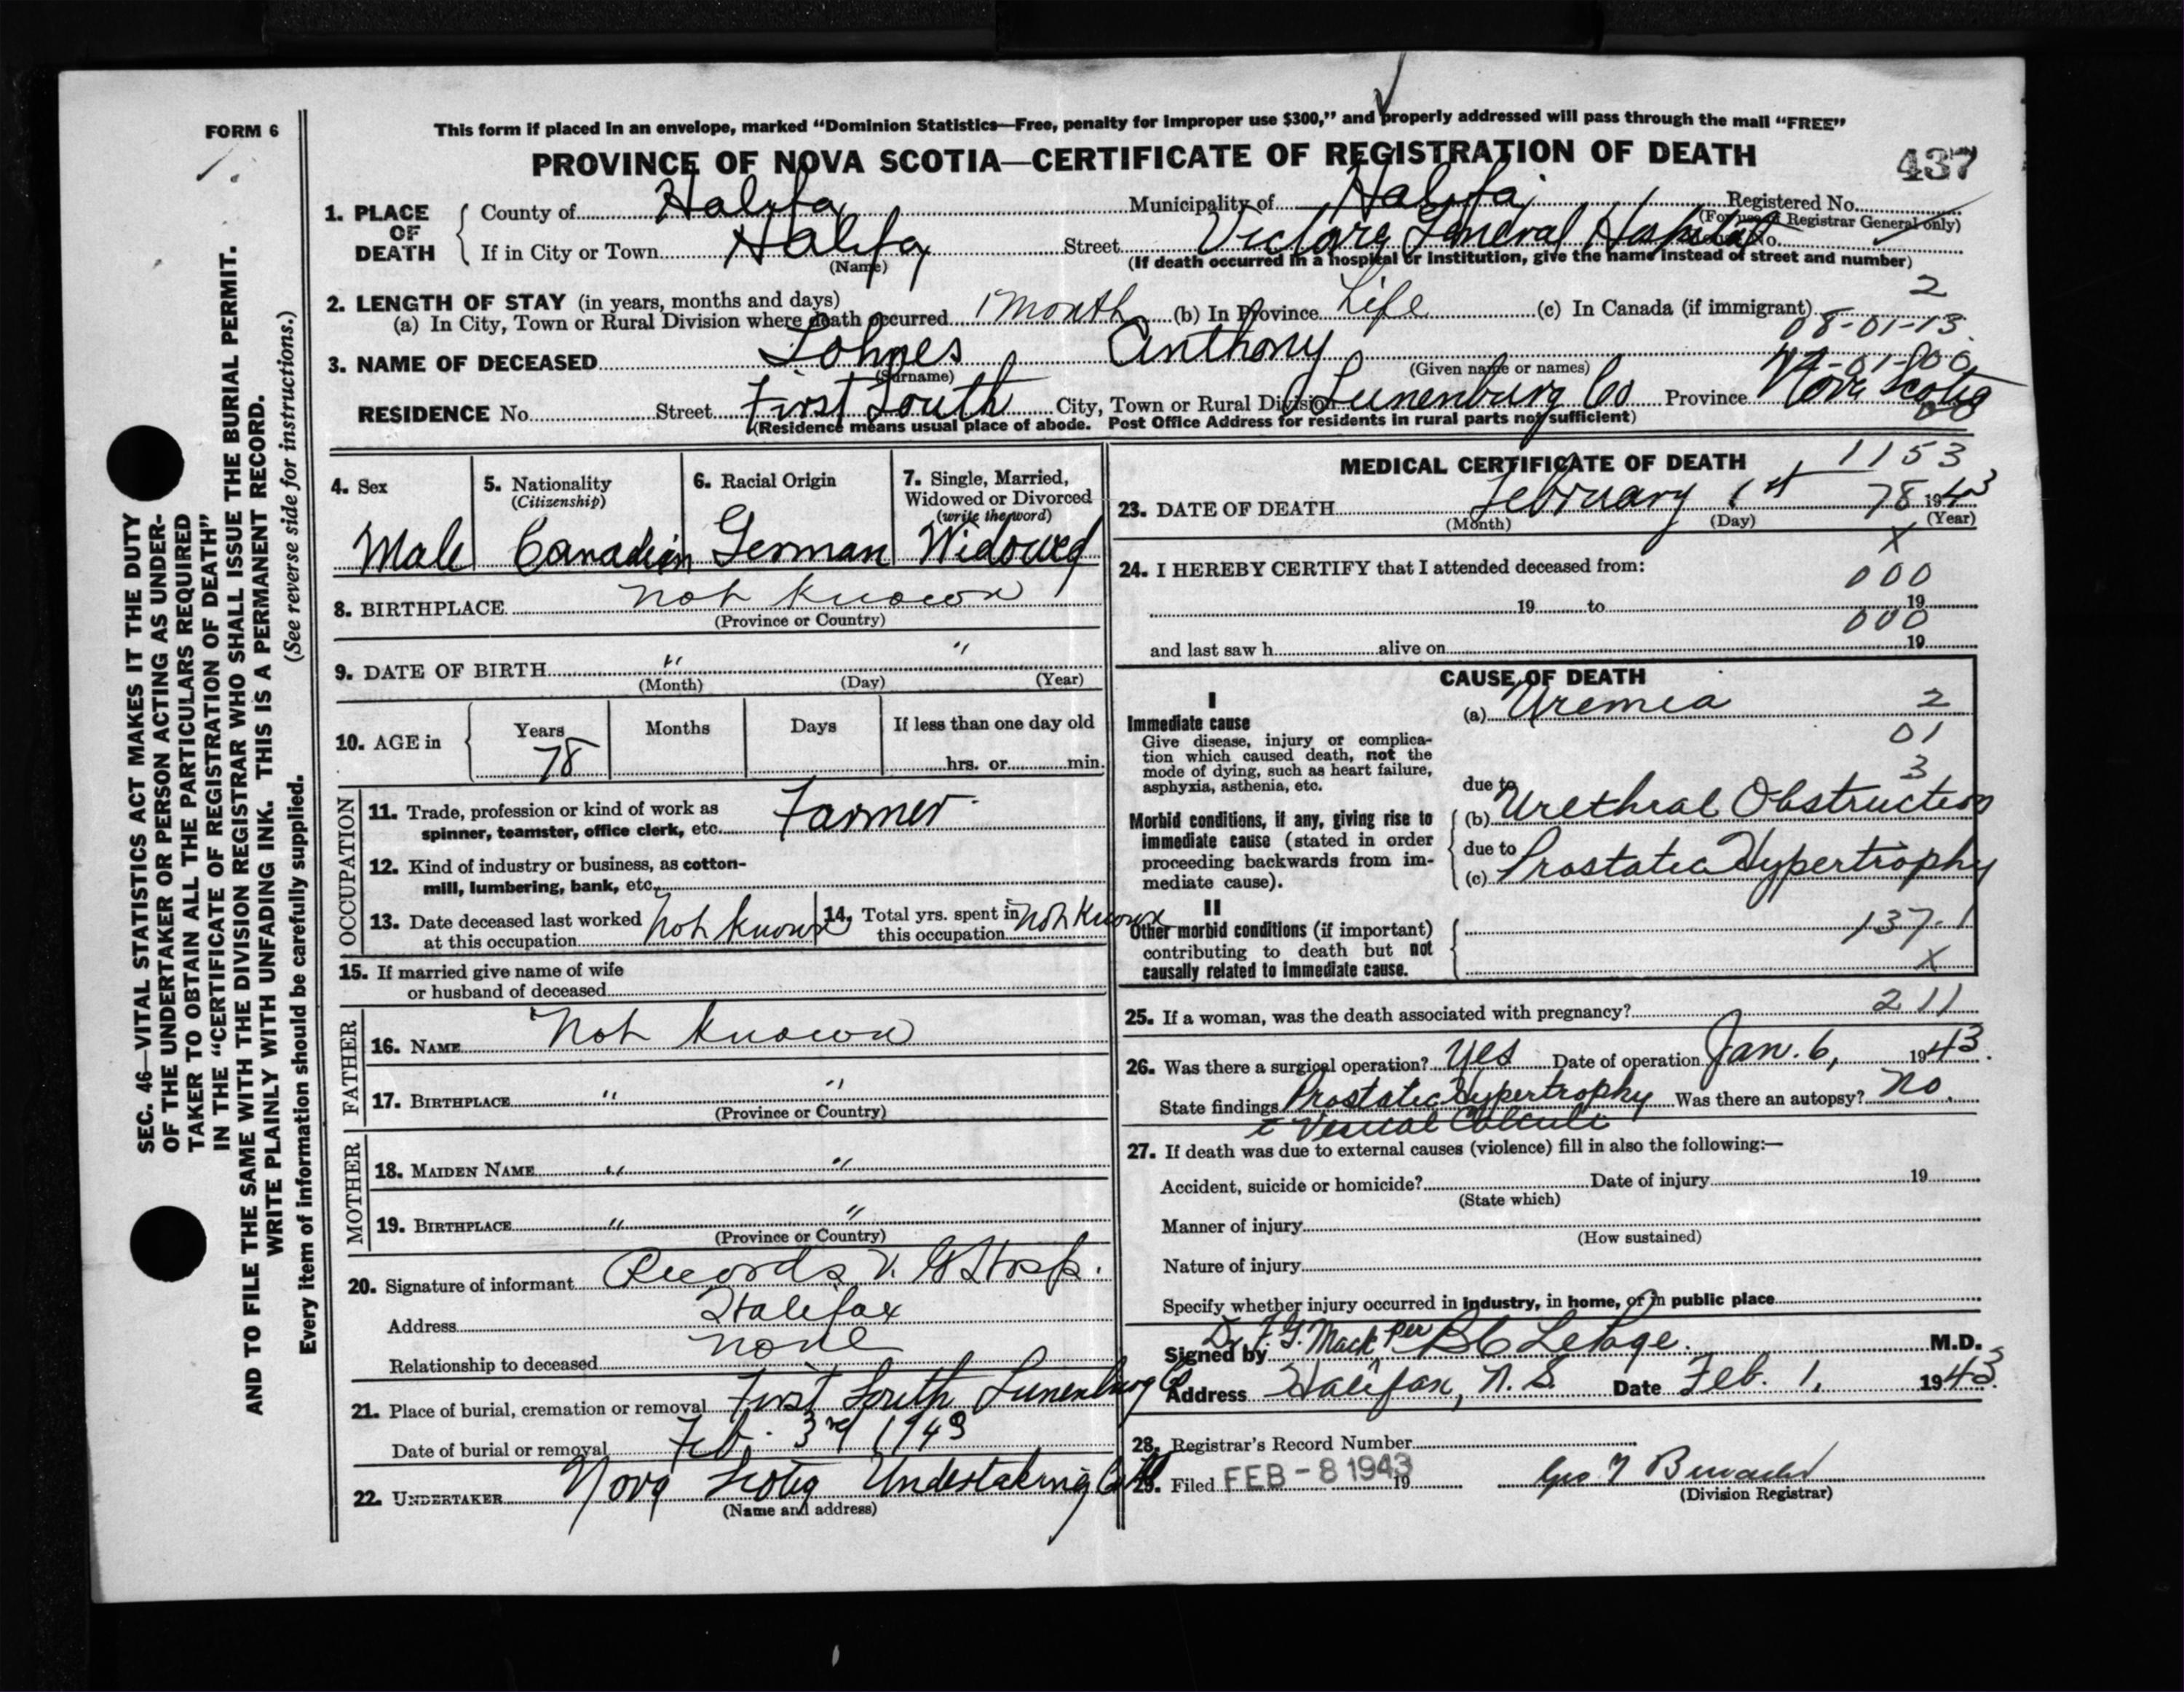 FORM 6
This form if placed in an envelope, marked “Dominion Statistics—Free, penalty for improper use $300,” and properly addressed will pass through the mail “FREE”
PROVINCE OF NOVA SCOTIA—CERTIFICATE OF REGISTRATION OF DEATH
437
SEC. 46—VITAL STATISTICS ACT MAKES IT THE DUTY
OF THE UNDERTAKER OR PERSON ACTING AS UNDER-
TAKER TO OBTAIN ALL THE PARTICULARS REQUIRED
IN THE “CERTIFICATE OF REGISTRATION OF DEATH”
AND TO FILE THE SAME WITH THE DIVISION REGISTRAR WHO SHALL ISSUE THE BURIAL PERMIT.
WRITE PLAINLY WITH UNFADING INK. THIS IS A PERMANENT RECORD.
Every item of information should be carefully supplied. (See reverse side for instructions.)
1. PLACE OF DEATH
County of Halifax Municipality of Halifax Registered No.
(For use of Registrar General only)
If in City or Town Halifax Street Victoria General Hospital No.
(Name)
(If death occurred in a hospital or institution, give the name instead of street and number)
2. LENGTH OF STAY (in years, months and days) 2
(a) In City, Town or Rural Division where death occurred 1 month (b) In Province Life (c) In Canada (if immigrant)
08-01-13
3. NAME OF DECEASED Lohnes Anthony
(Surname) (Given name or names)
RESIDENCE No. Street First South City, Town or Rural Division Lunenburg Co Province Nova Scotia
(Residence means usual place of abode. Post Office Address for residents in rural parts not sufficient)
4. Sex
Male
5. Nationality
(Citizenship)
Canadian
6. Racial Origin
German
7. Single, Married,
Widowed or Divorced
(write the word)
Widowed
8. BIRTHPLACE not known
(Province or Country)
9. DATE OF BIRTH " "
(Month) (Day) (Year)
10. AGE in
Years Months Days If less than one day old
78 hrs. or min.
OCCUPATION
11. Trade, profession or kind of work as
spinner, teamster, office clerk, etc. Farmer
12. Kind of industry or business, as cotton-
mill, lumbering, bank, etc.
13. Date deceased last worked
at this occupation Not known
14. Total yrs. spent in
this occupation Not Known
15. If married give name of wife
or husband of deceased
FATHER
16. NAME Not known
17. BIRTHPLACE " "
(Province or Country)
MOTHER
18. MAIDEN NAME " "
19. BIRTHPLACE " "
(Province or Country)
20. Signature of informant Records V. G Hosp.
Address Halifax
Relationship to deceased none
21. Place of burial, cremation or removal First South Lunenburg Co
Date of burial or removal Feb. 3rd 1943
22. UNDERTAKER Nova Scotia Undertaking Co
(Name and address)
MEDICAL CERTIFICATE OF DEATH 1153
23. DATE OF DEATH February 1st 78 1943
(Month) (Day) (Year)
X
24. I HEREBY CERTIFY that I attended deceased from:
000
19 to 19
000
and last saw h alive on 19
CAUSE OF DEATH
I
Immediate cause
Give disease, injury or complica-
tion which caused death, not the
mode of dying, such as heart failure,
asphyxia, asthenia, etc.
(a) Uremia 2
01
3
due to
Morbid conditions, if any, giving rise to
immediate cause (stated in order
proceeding backwards from im-
mediate cause).
(b) Urethral Obstruction
due to
(c) Prostatic Hypertrophy
II
Other morbid conditions (if important)
contributing to death but not
causally related to immediate cause.
137-1
X
25. If a woman, was the death associated with pregnancy? 211
26. Was there a surgical operation? Yes Date of operation Jan. 6, 1943.
State findings Prostatic Hypertrophy Was there an autopsy? No.
c Vesical Calculi
27. If death was due to external causes (violence) fill in also the following:—
Accident, suicide or homicide? Date of injury 19
(State which)
Manner of injury
(How sustained)
Nature of injury
Specify whether injury occurred in industry, in home, or in public place
Signed by Dr F. G. Mack per B C LePage. M.D.
Address Halifax, N.S. Date Feb. 1, 1943.
28. Registrar's Record Number
29. Filed FEB - 8 1943 19
(Division Registrar)